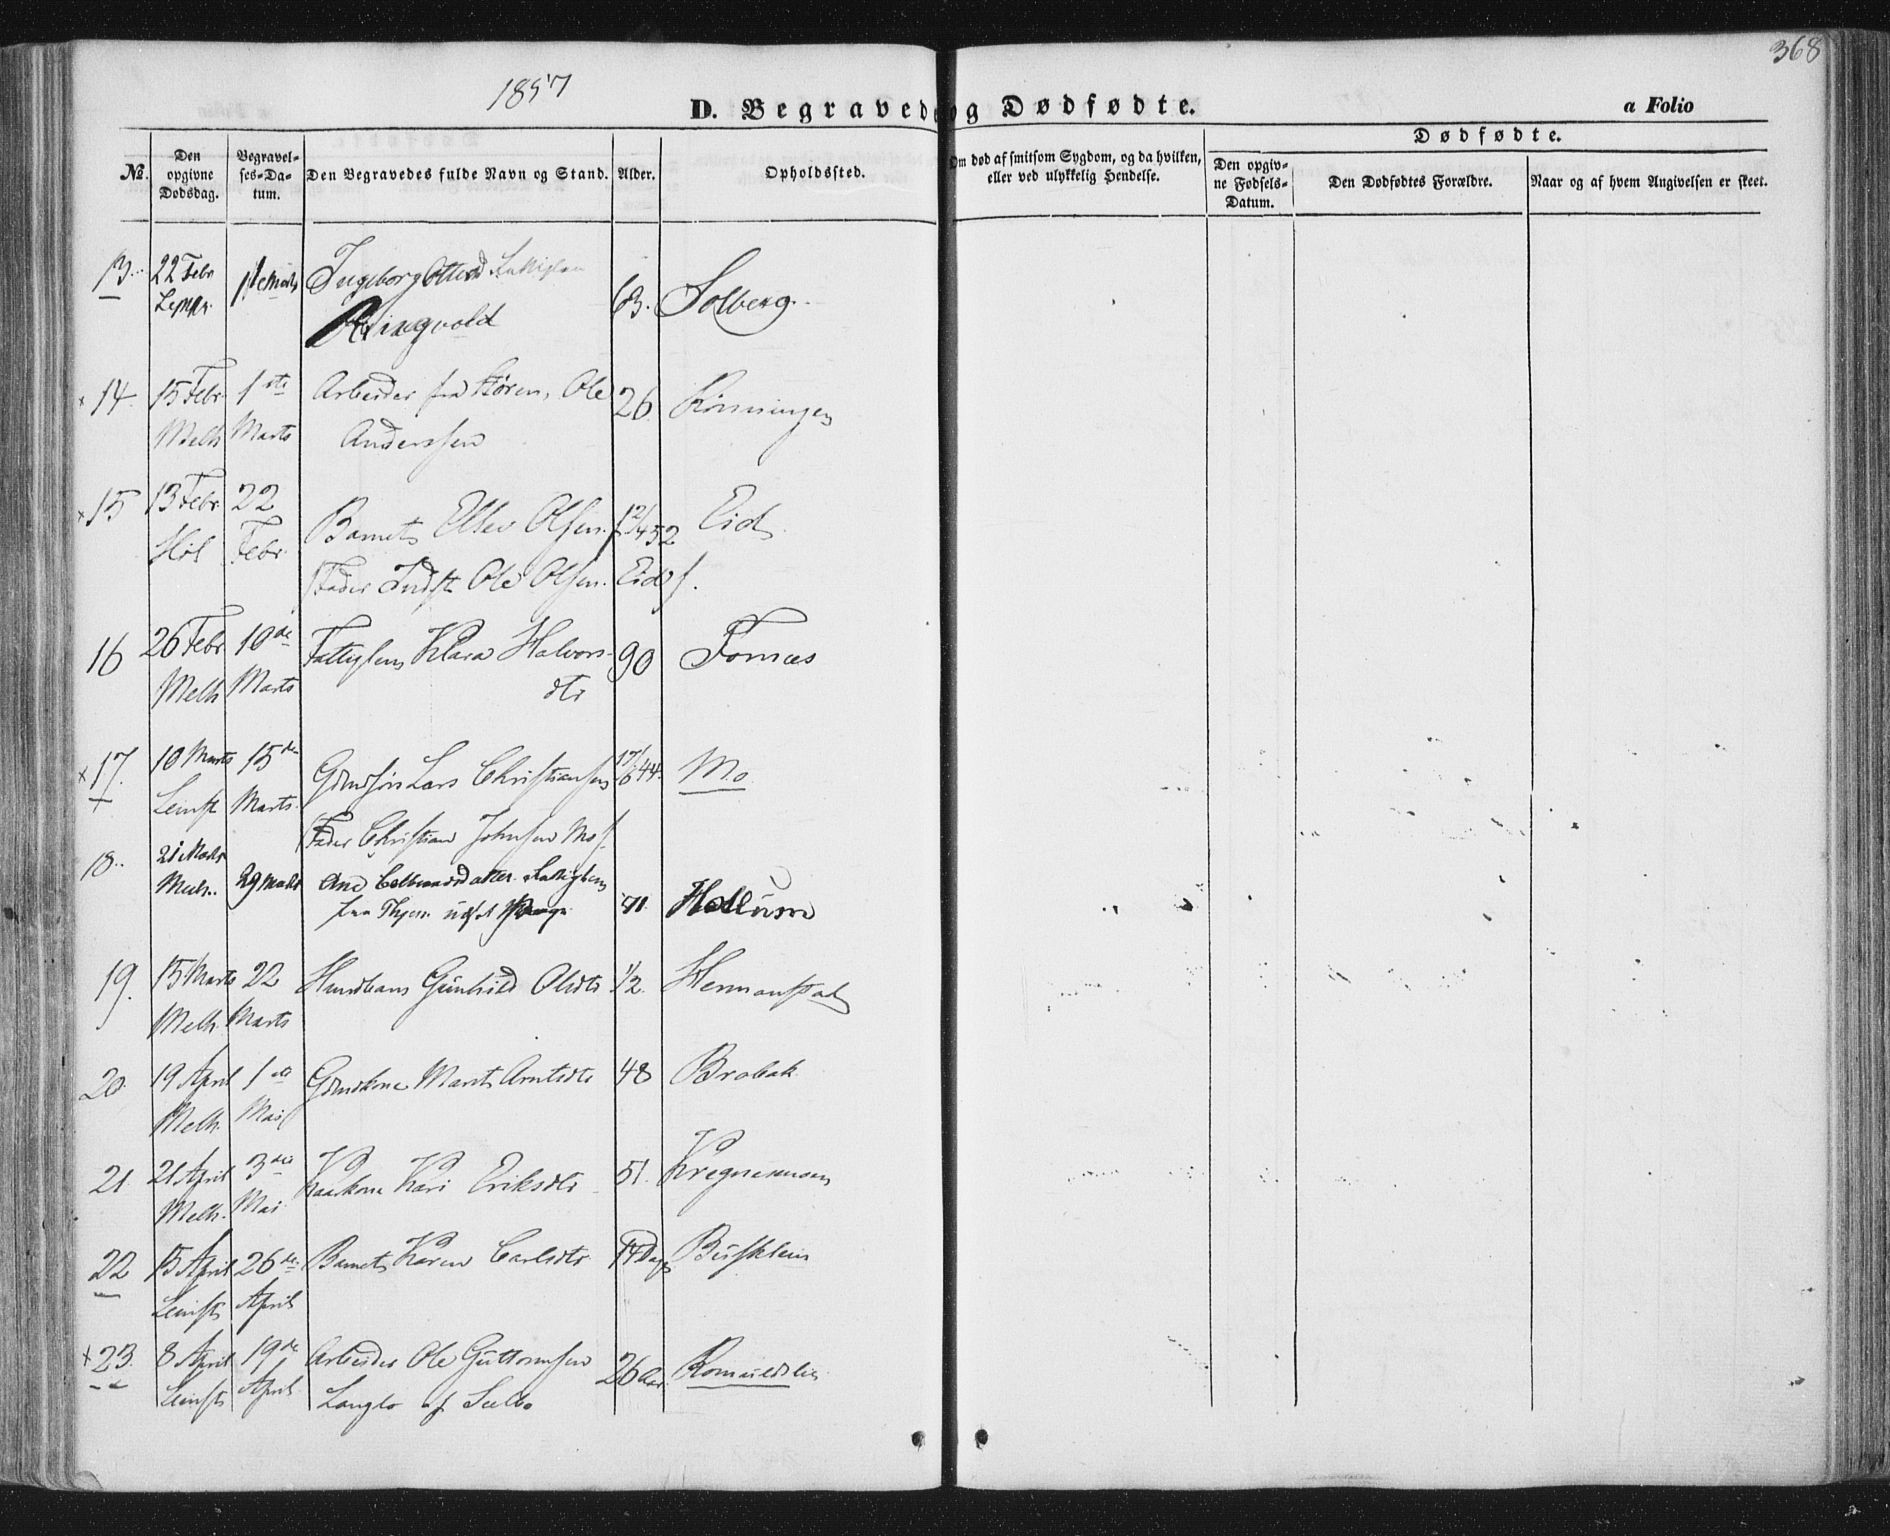 368
1857
D. Begravede og Dødfødte.
a Folio
Dødfødte.
No.
Den opgivne Dødsdag.
Begravelses-Datum.
Den Begravedes fulde Navn og Stand.
Alder.
Opholdssted.
Om død af smitsom Sygdom, og da hvilken, eller ved ulykkelig Hendelse.
Den opgivne Fødsels-Datum.
Den Dødfødtes Forældre.
Naar og af hvem Angivelsen er skeet.
13. 22 Febr Marts Ingeborg
Ringvold 63. Solberg.
x 14. 15 Febr 1ste Arbeider fra Støren, Ole 26 Rønningen
Melh Marts Anderssen
x 15 13 Febr. 22 Barnet Ellev Olsen 12/4 52 Eid
Høl Febr.
(Fader Indst Ole Olsen Eid).
16 26 Febr 10de Fattiglem Klara Halvors- 90 Fornæs
Melh Marts dtr
x 17. 10 Marts 15de Gmdsøn Lars Christiansen 17/6 44. Mo
Leinst Marts.
(Fader Christian Johnsen Mo)
18. 21 Marts
Melh. 29 Marts Ane Fattiglem
fra 71. Hollum
19. 15 Marts 22 Husmbarn Gunhild Olsdtr 1/2 Hermanstad
Melh. Marts
20. 19 April 1ste Gmdkone Marit Arntsdtr 48 Brobak
Melh. Mai
21. 21 April 3die Kaarkone Kari Eriksdtr 51.
Melh. Mai
22 15 April 26de Barnet Karen Carlsdtr 14 Dage Busklein
Leinst April
x 23. 8 April 19de Arbeider Ole Guttormsen 26 Aar.
Leinst April Langlo af Selbo